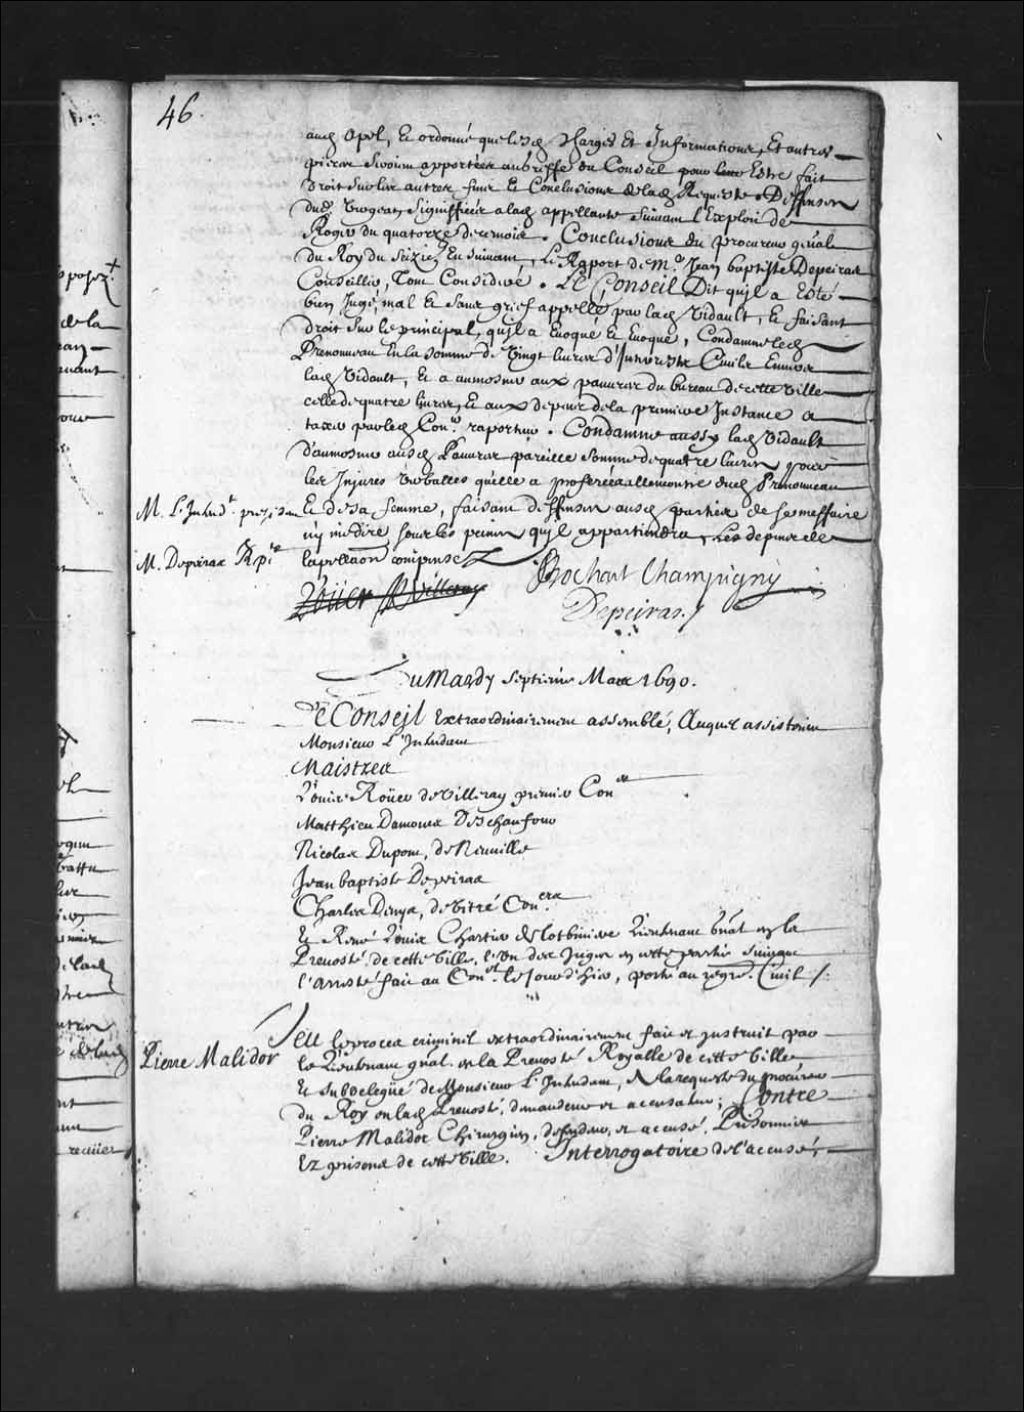 46.
aud. Apel, Et ordonné que lesd. charges Et Informations, Et autres
pieces seroient apportées au Greffe du Conseil pour leur Estre fait
droit sur les autres fins Et Conclusions de lad. Requeste. Deffenses
dud. signiffiées a lad. appellante suivant l'Exploit de
Roger du quatorze de ce mois. Conclusions du procureur g'nal
du Roy du seizie. Ensuivant, Le Raport de Me. Jean baptiste Depeiras
Conseiller, Tout Consideré. Le Conseil Dit qu'il a Esté
bien Jugé, mal Et sans grief appellé par lad. Vidault, Et faisant
droit sur le principal, qu'il a Evoqué Et Evoque, Condamne led.
Prenouveau En la somme de Vingt livres d'Interests Civils Envers
lad. Vidault, Et a aumosner aux pauvres du bureau de cette Ville
celle de quatre livres, Et aux depens de la premiere Instance a
taxer par led. Coner. raporteur. Condamne aussy lad. Vidault
d'aumosner ausd. Pauvres pareille somme de quatre livres pour
les Injures Verballes qu'elle a proferées allencontre dud. Prenouveau
M. L'Intendt. presidant
Et de sa femme, faisant deffenses ausd. parties de se meffaire
ny medire sous les peines qu'il appartiendra, Les depens de
M. Depeiras Rp.
lapellaon compensez
Roüer de Villeray
Bochart Champigny
Depeiras
Du Mardy septieme Mars 1690.
Le Conseil Extraordinairement assemblé, Auquel assistoient
Monsieur L'Intendant
Maistres
Louis Roüer de Villeray premier Coner
Matthieu Damours Deschaufour
Nicolas Dupont, de Neuville
Jean baptiste Depeiras
Charles Denys, de Vitré Coners
Et René Louis Chartier de Lotbiniere Lieutenant g'nal en la
Prevosté de cette Ville, l'Un des Juges en cette partie suivant
l'arresté fait au Conel. le Jour d'hier, porté au regre. Civil /:
Pierre Malidor
Veu le procez criminel extraordinairement fait et instruit par
le Lieutenant g'nal. en la Prevosté Royalle de cette Ville
Et subdelegué de Monsieur L'Intendant, A la requeste du procureur
du Roy en lad. Prevosté, demandeur et accusateur; Contre
Pierre Malidor Chirurgien, defendeur, et accusé, Prisonnier
Ez prisons de cette Ville. Interrogatoire de l'accusé,